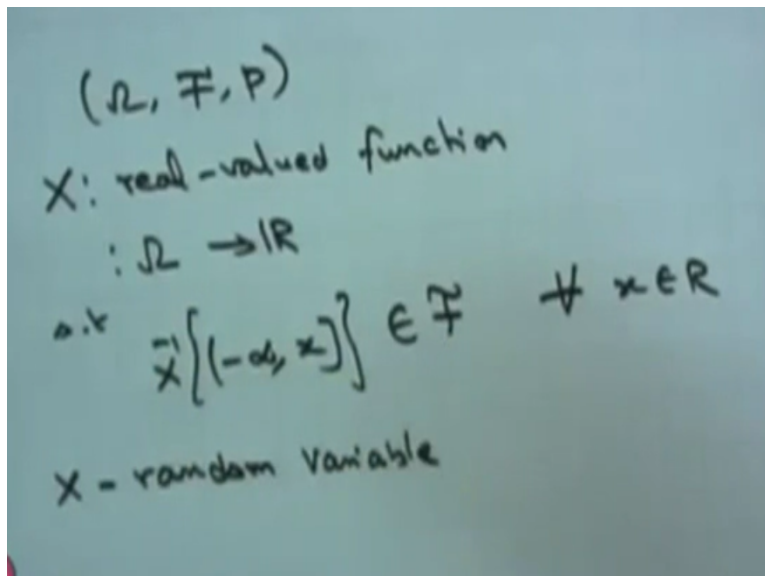 (Ω, F, P)
X: real-valued function
: Ω → IR
s.t X⁻¹{(-∞, x]} ∈ F ∀ x ∈ R
X - random variable